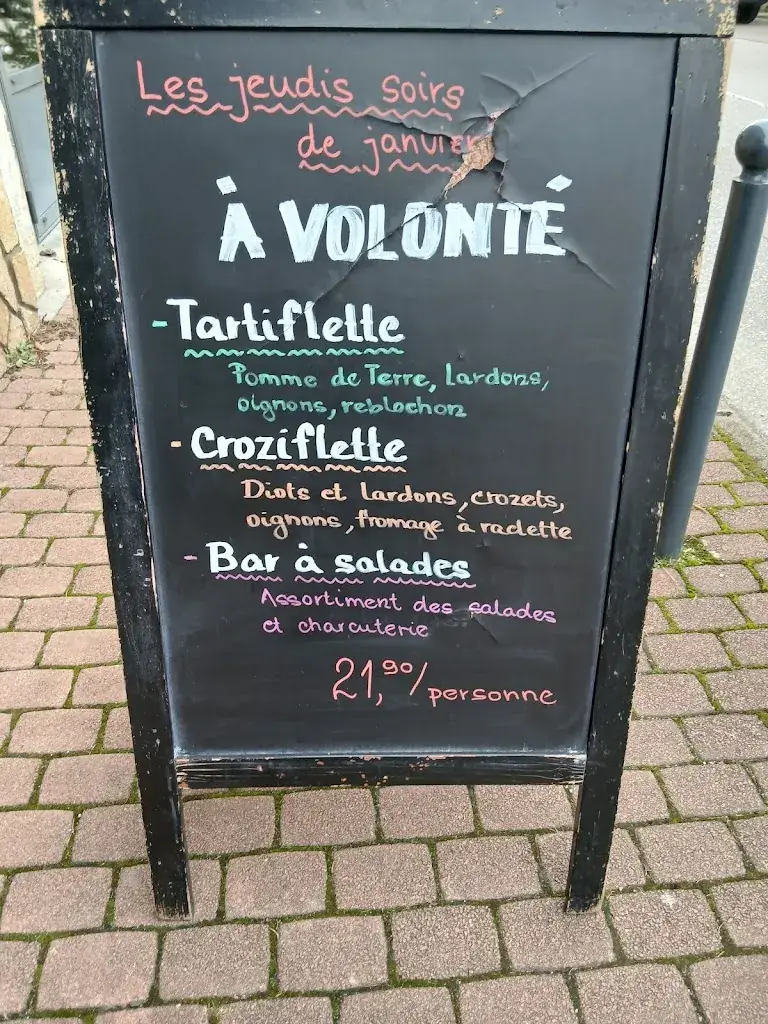 Les jeudis soirs
de janvier
À VOLONTÉ
- Tartiflette
Pomme de Terre, lardons,
oignons, reblochon
- Croziflette
Diots et lardons, crozets,
oignons, fromage à raclette
- Bar à salades
Assortiment des salades
et charcuterie
21,90/personne